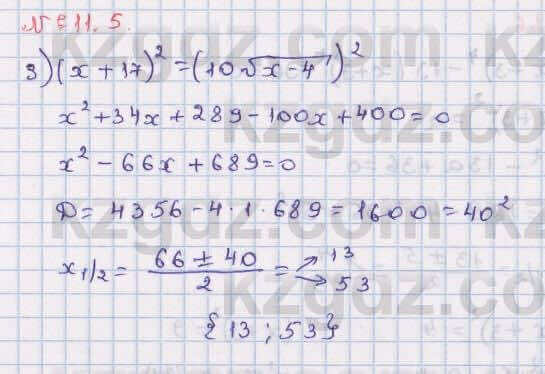 № 11.5.
3) (x+17)² = (10√x-4)²
x² + 34x + 289 - 100x + 400 = 0
x² - 66x + 689 = 0
D = 4356 - 4·1·689 = 1600 = 40²
x 1/2 = 66 ± 40 / 2 = → 13 → 53
{13 ; 53}
kzgdz.com